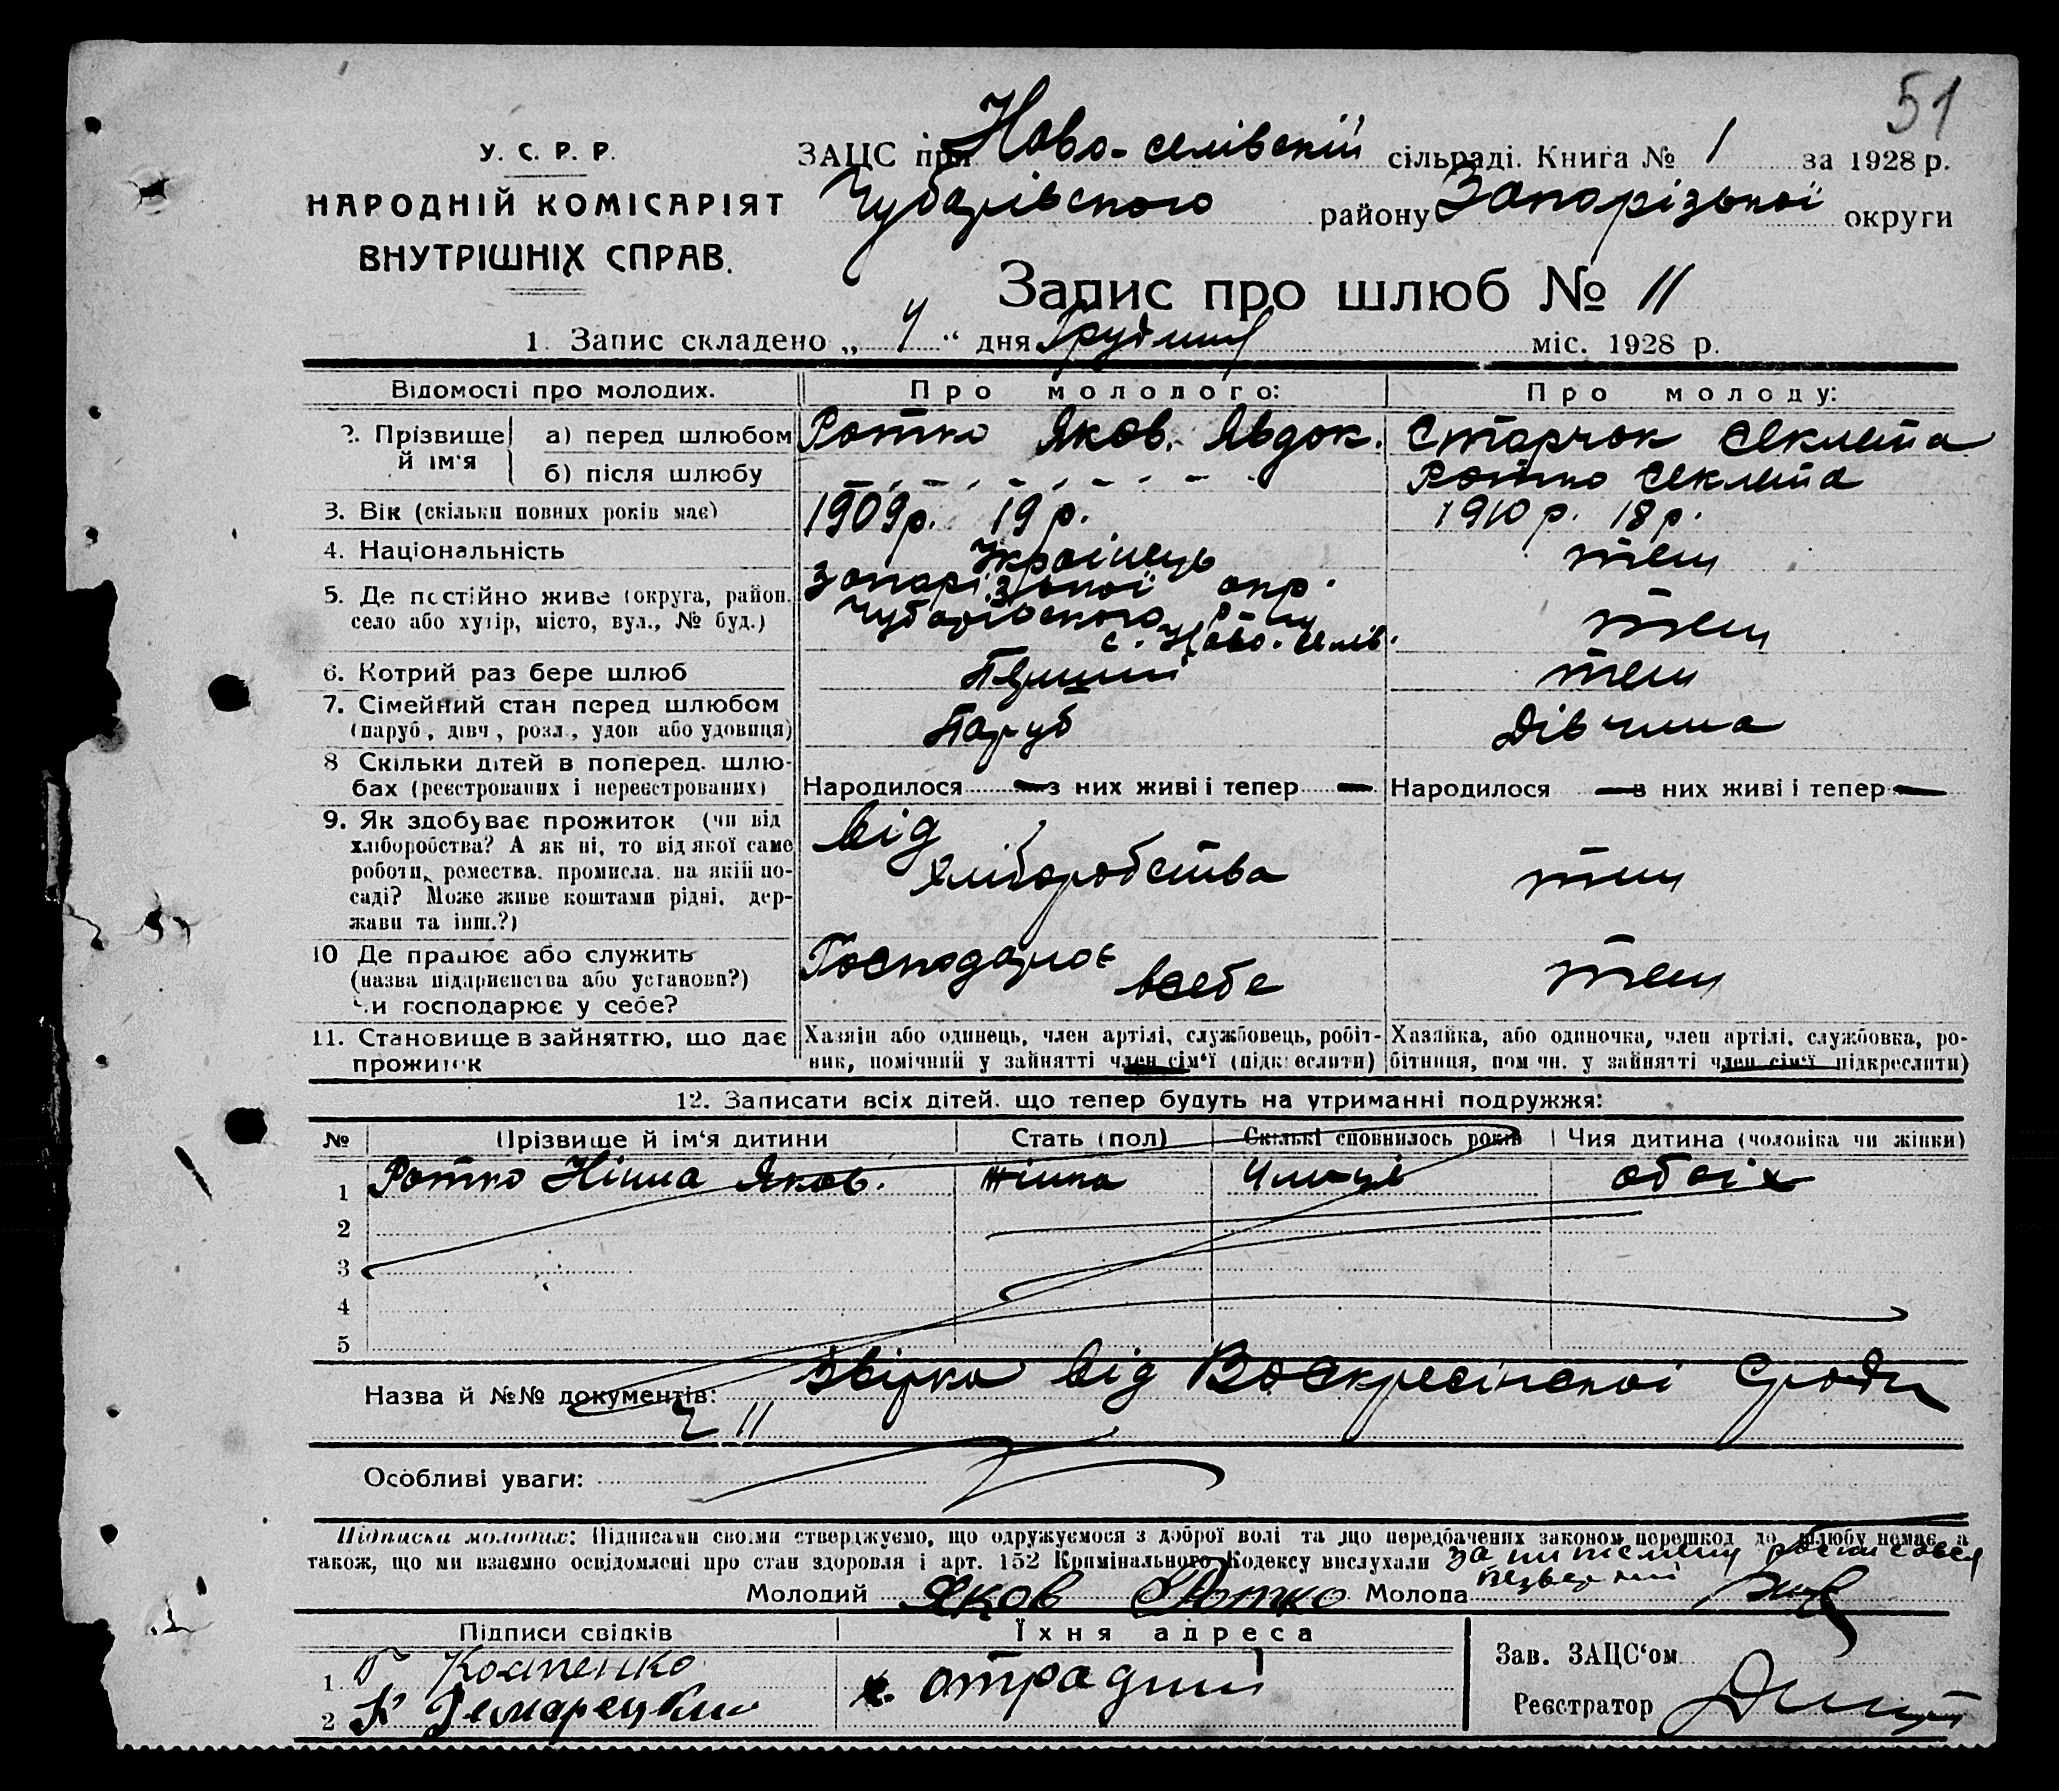 51
У. С. Р. Р.
НАРОДНІЙ КОМІСАРІЯТ
ВНУТРІШНІХ СПРАВ.
ЗАЦС при Ново-селівскій сільраді. Книга № 1 за 1928 р.
Чубарівського району Запорізької округи
Запис про шлюб № 11
1. Запис складено „ 4 " дня Грудня міс. 1928 р.
Відомості про молодих. Про молодого: Про молоду:
2. Прізвище й ім'я а) перед шлюбом Ротко Яков. Явдок. Старчок Секлета
б) після шлюбу - , - , - , - , - Ротко Секлета
3. Вік (скільки повних років має) 1909 р. 19 р. 1910 р. 18 р.
4. Національність Украінець теж
5. Де постійно живе (округа, район, село або хутір, місто, вул., № буд.) Запорізької окр. Чубарівского р-ну с. Ново-селів. теж
6. Котрий раз бере шлюб Перший теж
7. Сімейний стан перед шлюбом (паруб., дівч., розл., удов. або удовиця) Паруб Дівчина
8 Скільки дітей в поперед. шлюбах (реєстрованих і нереєстрованих) Народилося — з них живі і тепер — Народилося — з них живі і тепер —
9. Як здобуває прожиток (чи від хліборобства? А як ні, то від якої саме роботи, ремества, промисла, на якій посаді? Може живе коштами рідні, держави та інш.?) від хліборобства теж
10 Де працює або служить (назва підприємства або установи?) Чи господарює у себе? Господарює всебе теж
11. Становище в зайняттю, що дає прожиток Хазяїн або одинець, член артілі, службовець, робітник, помічний у зайнятті член сім'ї (підкреслити) Хазяйка, або одиночка, член артілі, службовка, робітниця, помічн. у зайнятті член сім'ї підкреслити)
12. Записати всіх дітей, що тепер будуть на утриманні подружжя:
№ Прізвище й ім'я дитини Стать (пол) Скількі сповнилось років Чия дитина (чоловіка чи жінки)
1 Ротко Нінна Яков. жінка 4 м-ці обоіх
2
3
4
5
Назва й №№ документів: Звірка від Воскресінской Сради
11
Особливі уваги:
Підписка молодих: Підписами своїми стверджуємо, що одружуємося з доброї волі та що передбачених законом перешкод до шлюбу немає, а
також, що ми взаємно освідомлені про стан здоровля і арт. 152 Кримінального Кодексу вислухали
за ниписмену росписався
Молодий Яков Ротко Молода
Підписи свідків Їхня адреса
1 Г Костенко х. отрадний
2
Зав. ЗАЦС'ом
Реєстратор